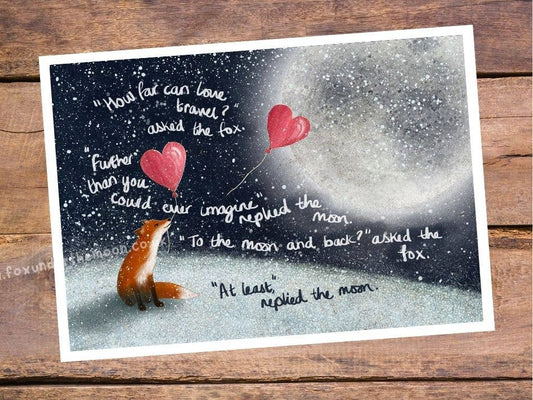 "How far can love
travel?"
asked the fox.
"Further
than you
could ever imagine" replied the
moon.
"To the moon and back?" asked the
fox.
"At least,"
replied the moon.